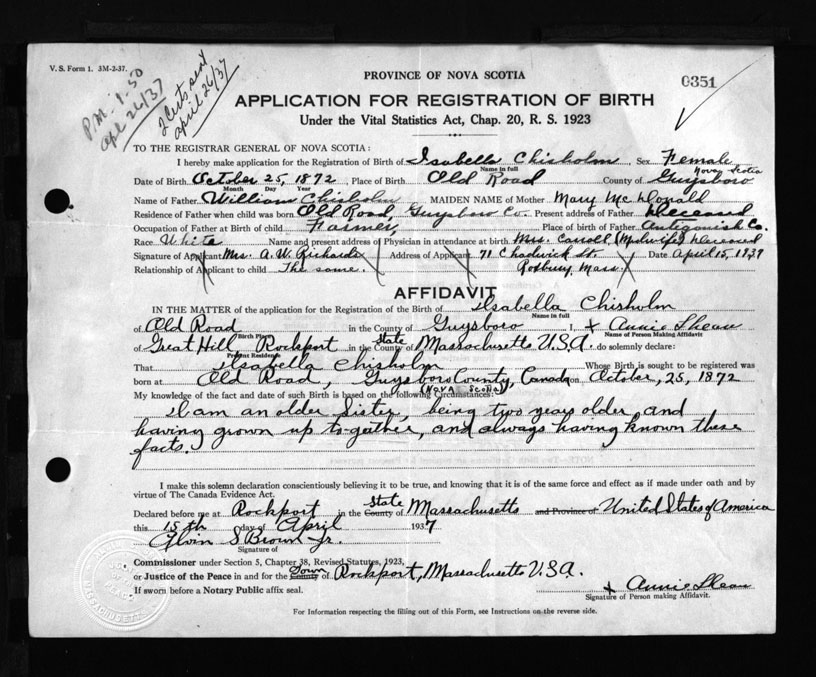 V. S. Form 1. 3M-2-37.
P.M. 1.50
apl 26/37
2 Certs sent
april 26/37
PROVINCE OF NOVA SCOTIA
0351
APPLICATION FOR REGISTRATION OF BIRTH
Under the Vital Statistics Act, Chap. 20, R. S. 1923
TO THE REGISTRAR GENERAL OF NOVA SCOTIA:
I hereby make application for the Registration of Birth of Isabella Chisholm, Sex Female
Name in full
Nova Scotia
Date of Birth October 25, 1872, Place of Birth Old Road County of Guysboro
Month Day Year
Name of Father William Chisholm MAIDEN NAME of Mother Mary McDonald
Residence of Father when child was born Old Road, Guysboro Co. Present address of Father Deceased
Occupation of Father at Birth of child Farmer, Place of birth of Father Antigonish Co.
Race White Name and present address of Physician in attendance at birth Mrs. Carroll (Midwife) Deceased
Signature of Applicant Mrs. A. W. Richards Address of Applicant 71 Chadwick St. Date April 15, 1937
Relationship of Applicant to child The same. Roxbury, Mass.
AFFIDAVIT
IN THE MATTER of the application for the Registration of the Birth of Isabella Chisholm
Name in full
of Old Road in the County of Guysboro I, x Annie Shean
Birth Place
Name of Person Making Affidavit
of Great Hill Rockport in the County State of Massachusetts U.S.A. do solemnly declare:
Present Residence
That Isabella Chisholm Whose Birth is sought to be registered was
born at Old Road, Guysboro County, Canada on October, 25, 1872
(NOVA SCOTIA)
My knowledge of the fact and date of such Birth is based on the following Circumstances:
I am an older Sister, being two years older, and
having grown up to-gather, and always having known these
facts.
I make this solemn declaration conscientiously believing it to be true, and knowing that it is of the same force and effect as if made under oath and by
virtue of The Canada Evidence Act.
Declared before me at Rockport in the County State of Massachusetts and Province of United States of America
this 15th day of April 1937
Signature of
Commissioner under Section 5, Chapter 38, Revised Statutes, 1923,
or Justice of the Peace in and for the County Town of Rockport, Massachusetts U.S.A.
If sworn before a Notary Public affix seal.
x Annie Shean
Signature of Person making Affidavit.
For Information respecting the filling out of this Form, see Instructions on the reverse side.
MASSACHUSETTS